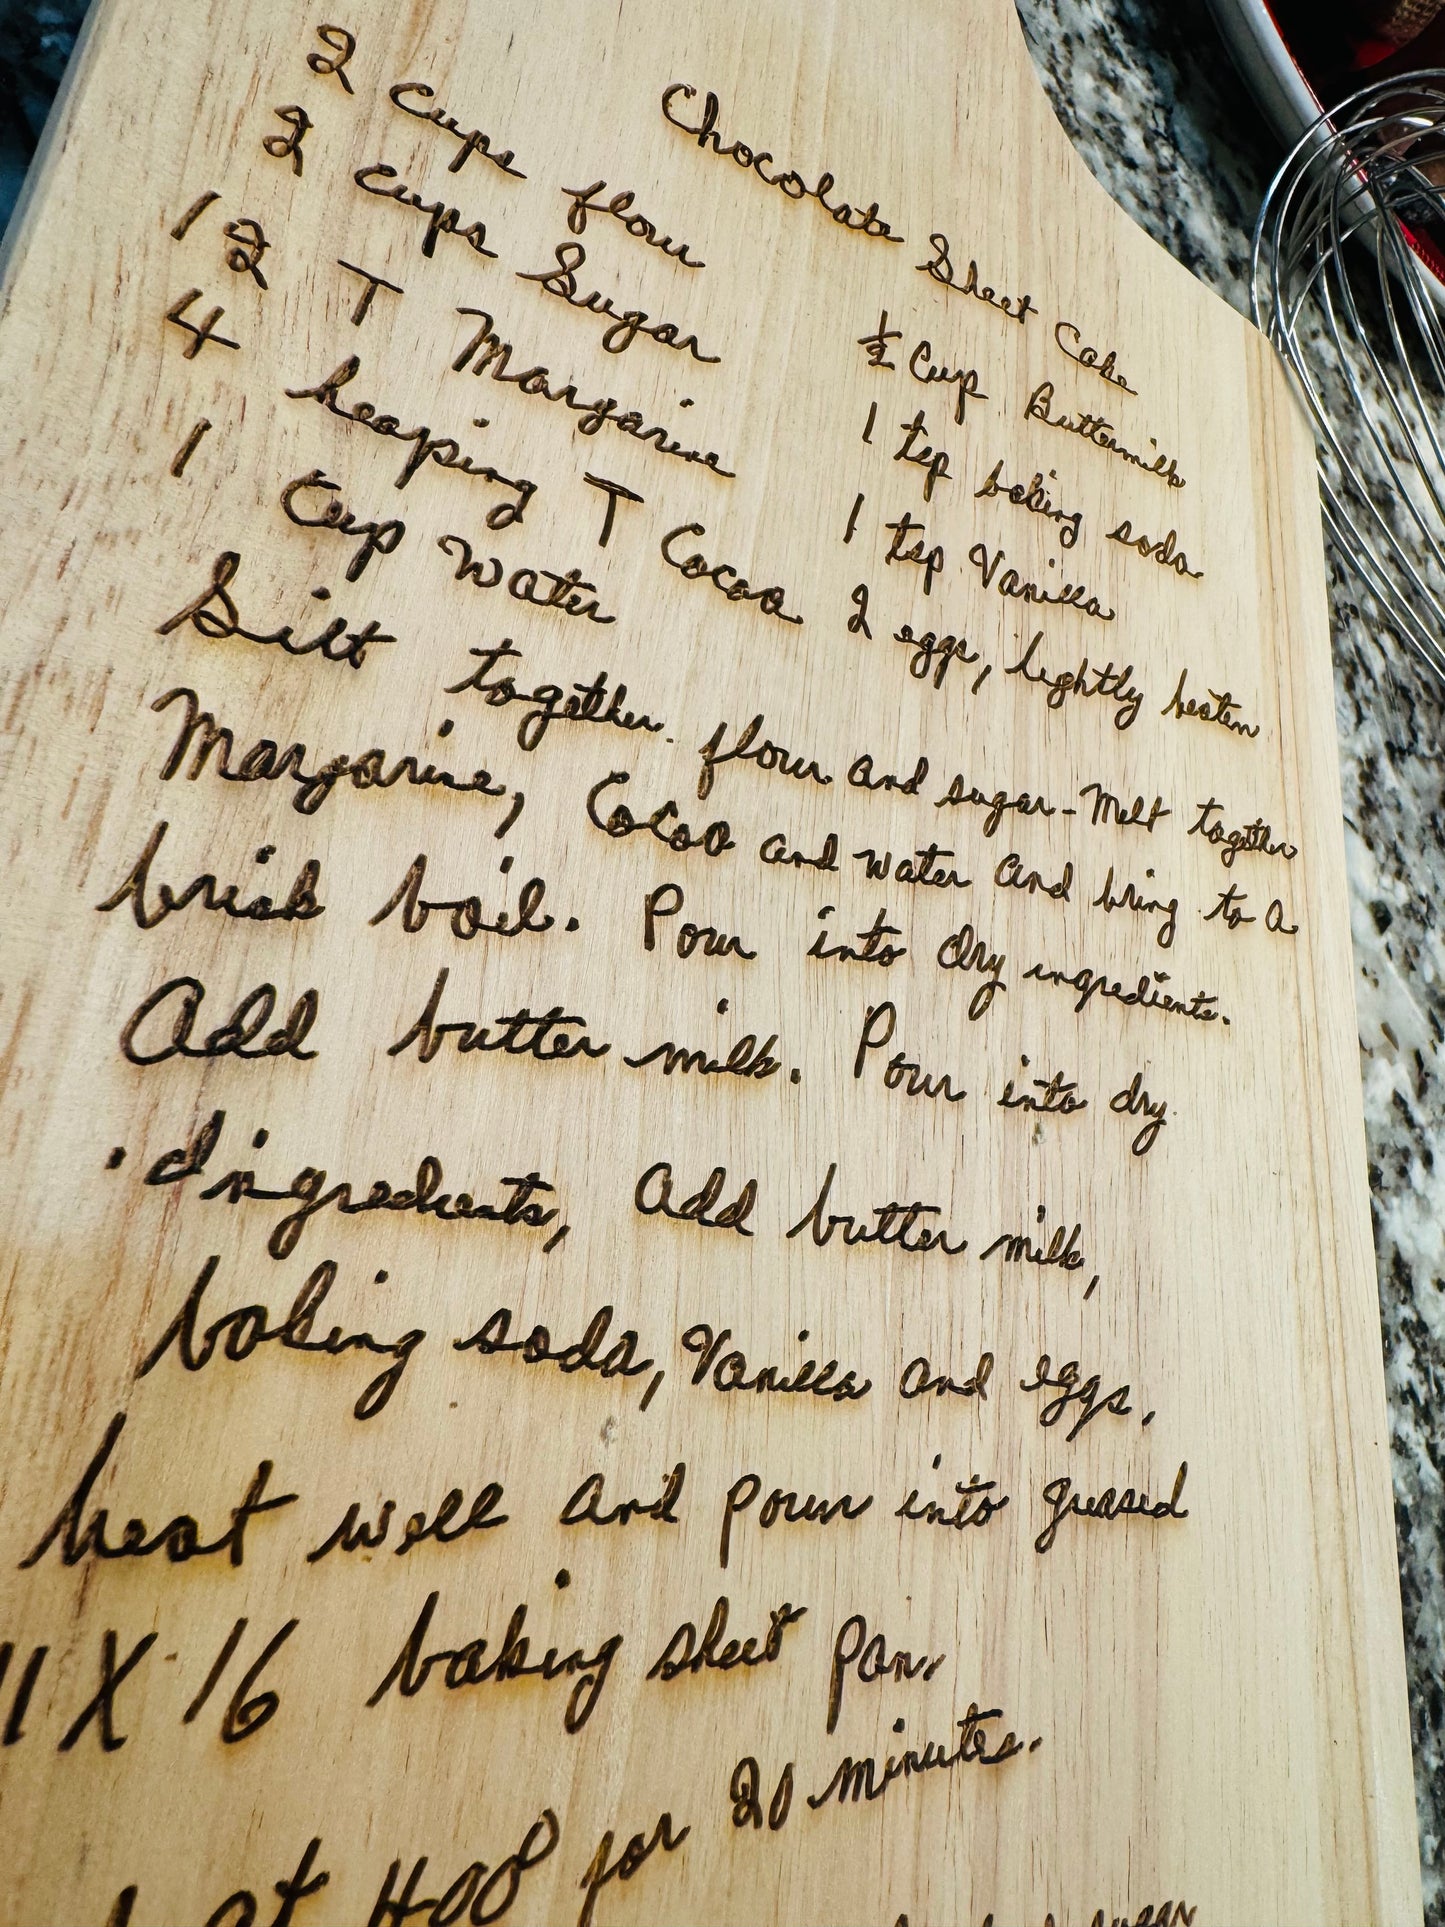 Chocolate Sheet Cake
2 cups flour
2 cups Sugar
12 T Margarine
4 heaping T Cocoa
1 Cup water
½ Cup Buttermilk
1 tsp baking soda
1 tsp Vanilla
2 eggs, lightly beaten
Sift together flour and sugar - Melt together
Margarine, Cocoa and water and bring to a
brisk boil. Pour into dry ingredients.
Add butter milk. Pour into dry
ingredients, Add butter milk,
baking soda, Vanilla and eggs,
beat well and pour into greased
11 X 16 baking sheet pan.
at 400° for 20 minutes.